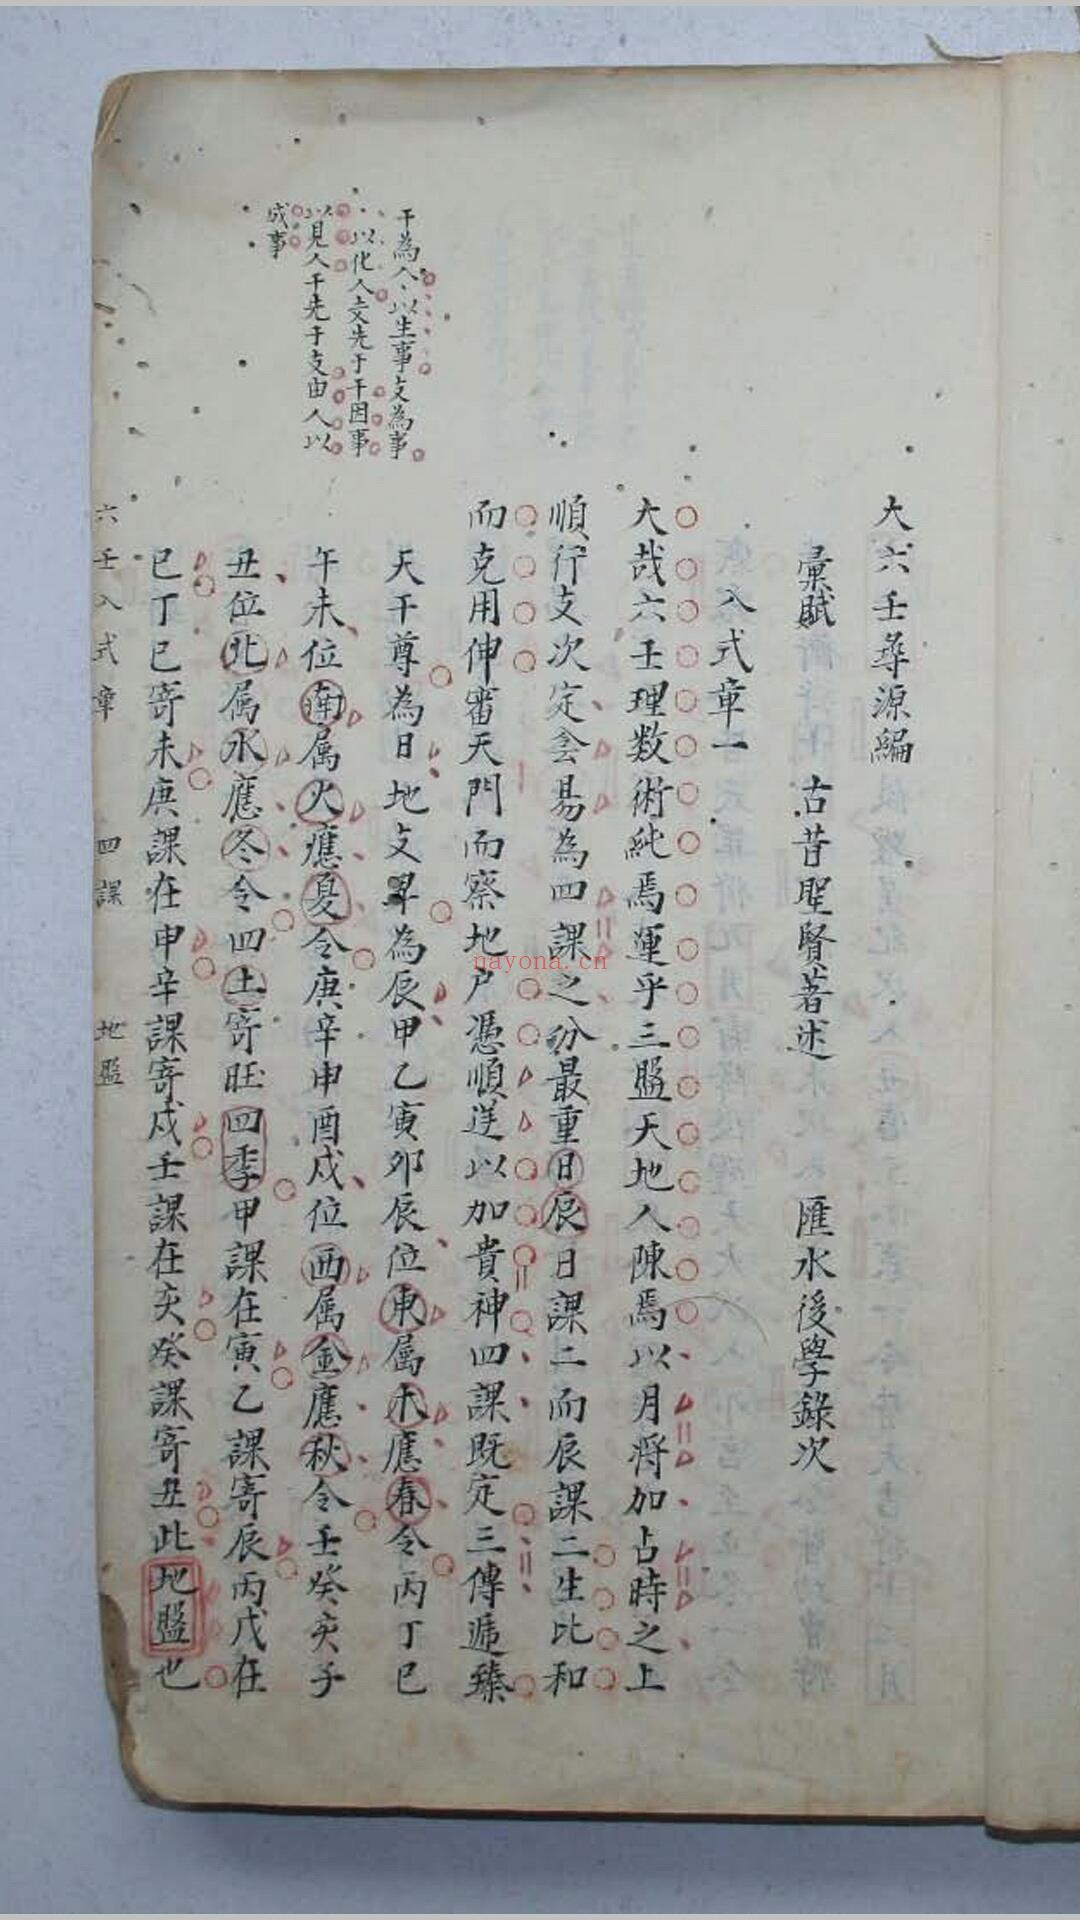 大六壬尋源編
彙賦 古昔聖賢著述 匯水後學錄次
入式章一
大哉六壬理数術純焉運乎三盤天地人陳焉以月将加占時之上
順行支次定侌昜為四課之分最重日辰日課二而辰課二生比和
而克用伸審天門而察地户憑順逆以加貴神四課既定三傳遞臻
天干尊為日地支卑為辰甲乙寅卯辰位東属木應春令丙丁巳
午未位南属火應夏令庚辛申酉戌位西属金應秋令壬癸亥子
丑位北属水應冬令四土寄旺四季甲課在寅乙課寄辰丙戊在
巳丁己寄未庚課在申辛課寄戌壬課在亥癸課寄丑此地盤也
干為人以生事支為事
以化人支先于干因事
以見人干先于支由人以
成事
六壬入式章 四課 地盤
nayona.cn